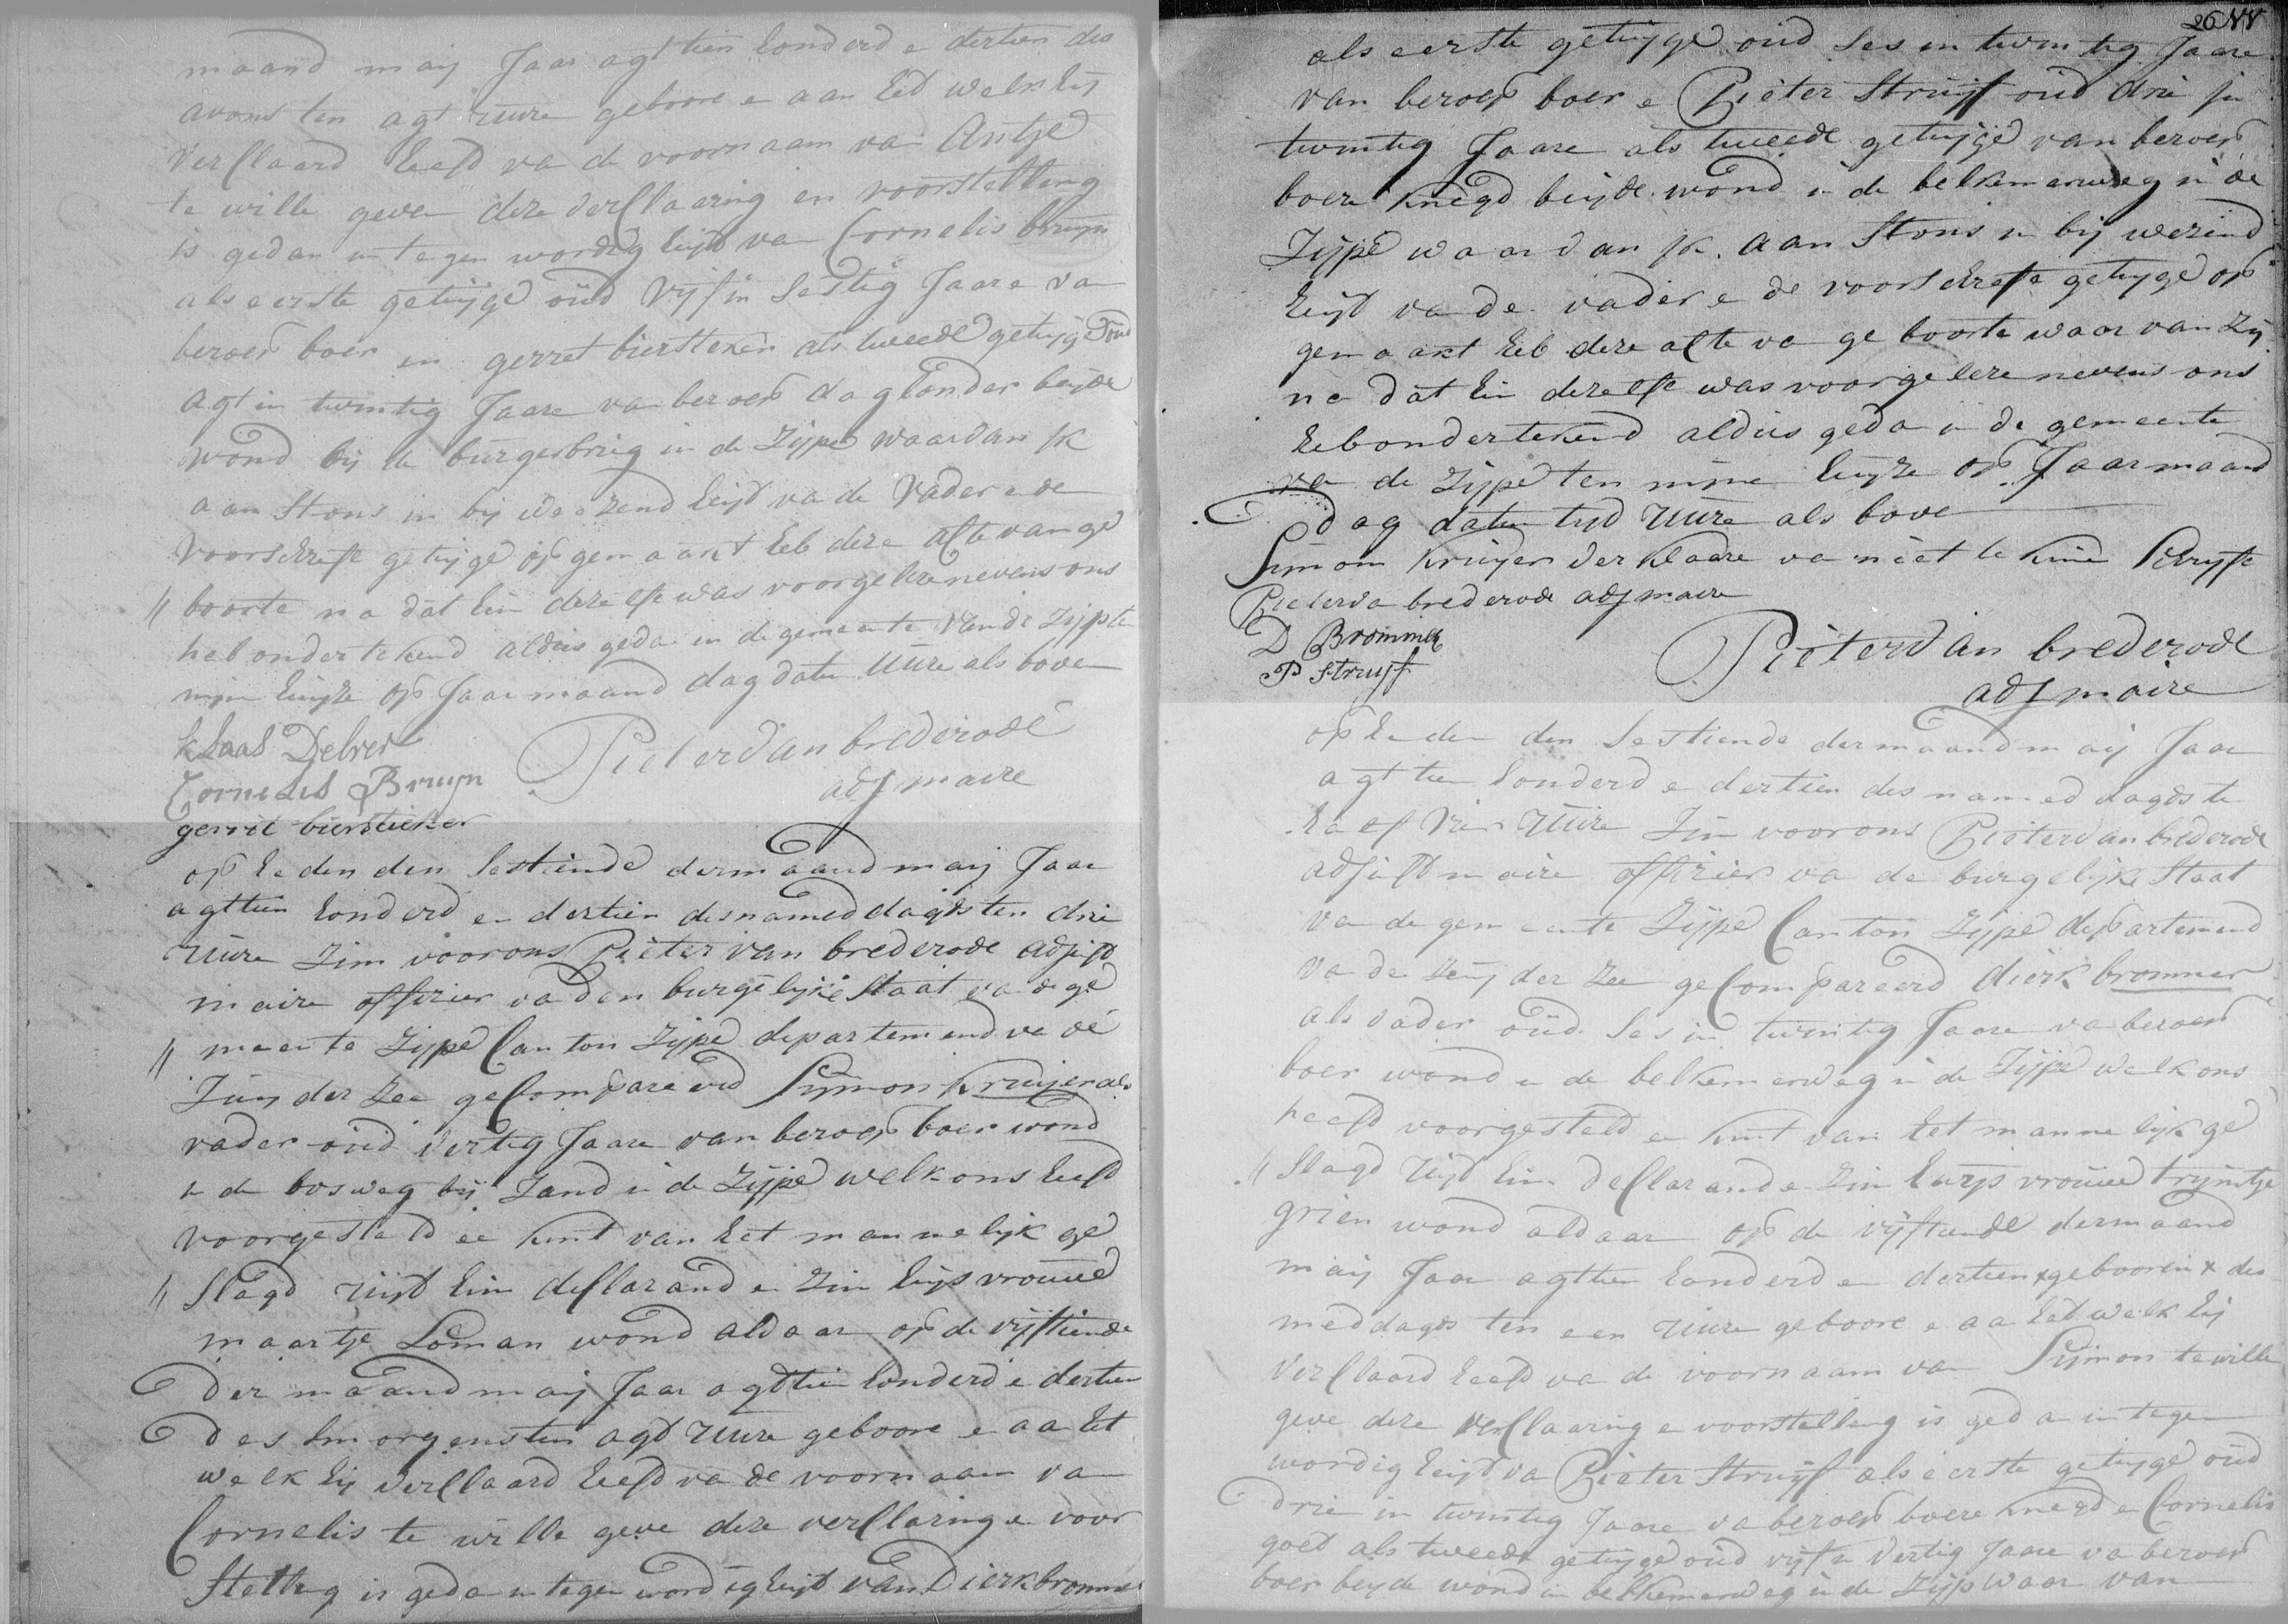 maand maij Jaar agttien honderd e dertien des
avons ten agt uure geboore e aan het welk hij
verClaard heeft va de voornaam van Antje
te wille geven deze verClaaring en voorstelling
is gedan in tegen wordig heijd van Cornelis bruijn
als eerste getuijge oud vijf in sestig Jaare va
beroep boer en gerret biersteker als tweede getuijge oud
agt in twintig Jaare van beroep daglonder beijde
wond bij de burgerbrug in de Zijpe waar van ik
aan stons in bij weezend heijd va de vader e de
voorschreste getuijge op gemaakt heb deze Akte van ge
boorte na dat hin dezelfe was voorgeleze nevens ons
heb ondertekend aldus geda in de gemeente van de Zijp te
mijn huijze op Jaar maand dag datu uure als boven
klaas Delver
Cornelis Bruyn
gerrit biersteker
Pieter van brederode
adj maire
op heden den sestiende der maand maij Jaar
agttien honderd en dertien des nameddagds ten drie
uure Zin voor ons Pieter van brederode adjist
maire offizier va den burgelijke Staat va de ge
meente Zijpe Canton Zijpe departemend va de
Zuij der Zee geCompareerd Sijmon Kruijer als
vader oud vertig Jaare van beroep boer wond
in de bosweg bij Zand in de Zijpe welk ons heeft
voorgesteld ee kint van het mannelijk ge
slagd uijt hin deClarand e Zin huijs vrouwe
maartje Loman wond aldaar op de vijftiende
der maand maij Jaar agttien honderd e dertien
des smorgens ten agt uure geboore e aa het
welk hij verClaard heeft va de voornaam va
Cornelis te wille geve deze verClaring e voor
stelling is geda in tegen wordigheijd van Dierk brommer
26 VV
als eerste getuijge oud ses in twintig Jaare
van beroep boer e Pieter Struijf oud drie in
twintig Jaare als tweede getuijge van beroep
boere knegd beijde wond in de belkemerweg in de
Zijpe waar van ik aan stons in bij wezend
heijd va de vader e de voorschreste getuijge op
gemaakt heb deze akte va geboorte waar van zij
na dat hin dezelfe was voorgeleze nevens ons
heb ondertekend aldus geda in de gemeente
va de Zijpe ten mijne huijze op Jaar maand
dag datu tijd uure als bove
Simom Kruijer verklaare va niet te kinne schrijfe
Pieter va brederode adj maire
D Brommer
P Struijf
Pieter van brederode
adj maire
op heden den sestiende der maand maij Jaar
agttien honderd e dertien des nameddagds te
half vier uure Zin voor ons Pieter van brederode
adjist maire offizier va de burgelijke Staat
va de gemeente Zijpe Canton Zijpe departemend
va de Zuij der Zee geCompareerd dierk brommer
als vader oud ses in twintig Jaare va beroep
boer wond in de belkemerweg in de Zijpe welk ons
heefd voorgesteld e kint van het mannelijk ge
slagd uijt hin deClarand e Zin huijs vrouwe trijntje
grien wond aldaar op de vijftiende der maand
maij Jaar agttien honderd en dertien x geboorin x des
meddagds ten een uure geboore e aa het welk hij
verClaard heefd va de voornaam va Sijmon te wille
geve deze verClaaring e voorstelling is geda in tegen
wordig heijd va Pieter Struijf als eerste getuijge oud
drie in twintig Jaare va beroep boere knegd e Cornelis
goed als tweede getuijge oud vijf in vertig Jaare va beroep
boer beijde wond in belkemerweg in de Zijp waar van